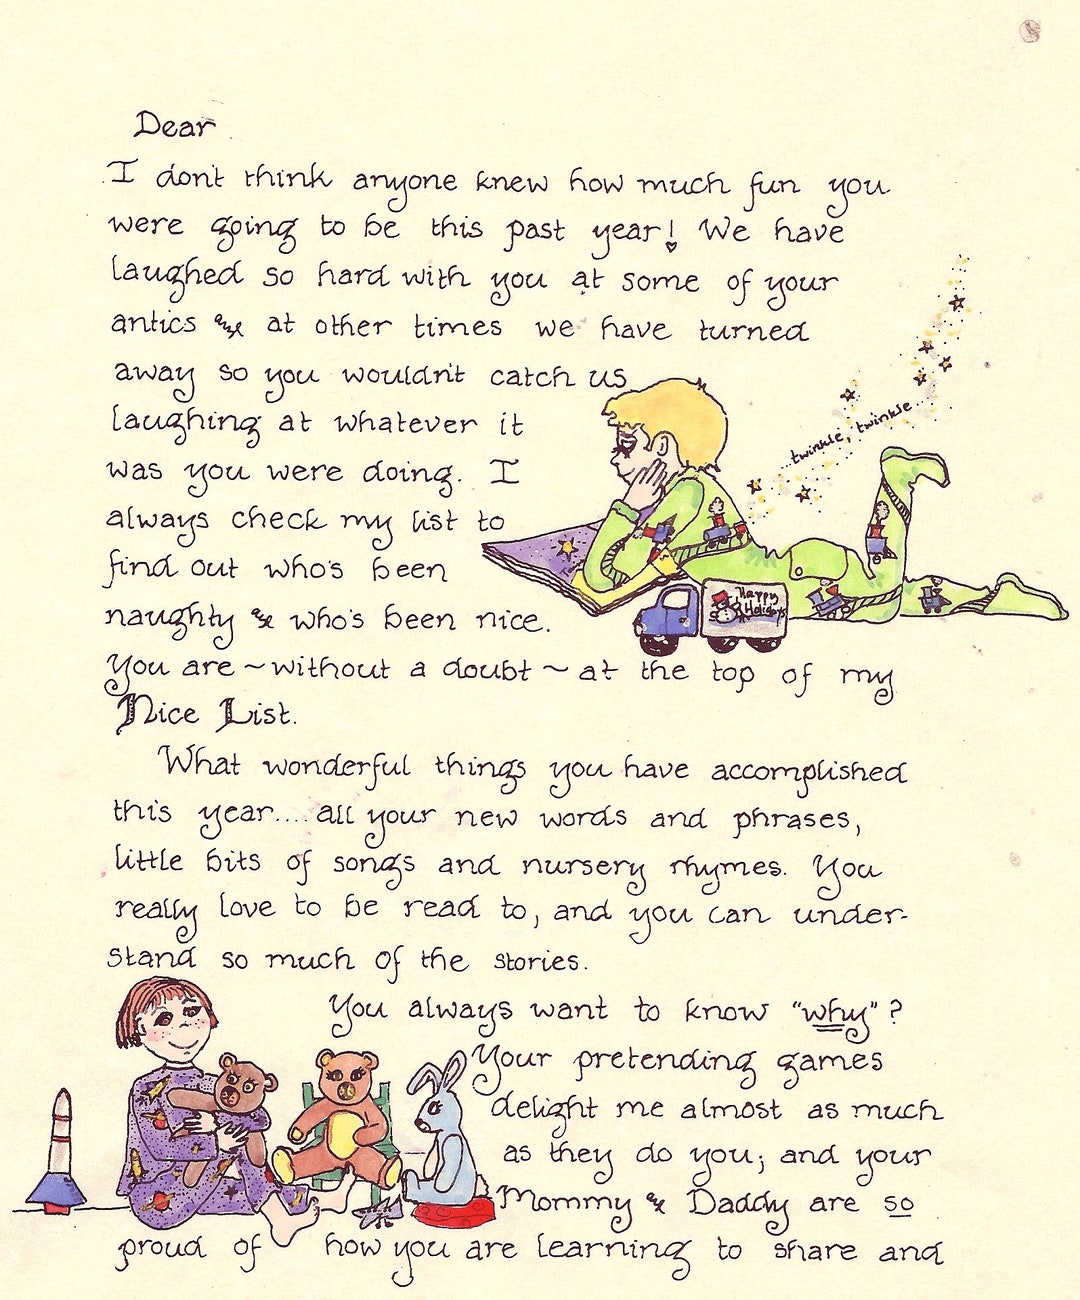 Dear
I don't think anyone knew how much fun you
were going to be this past year! We have
laughed so hard with you at some of your
antics and at other times we have turned
away so you wouldn't catch us
laughing at whatever it
was you were doing. I
always check my list to
find out who's been
naughty & who's been nice.
You are ~ without a doubt ~ at the top of my
Nice List.
twinkle, twinkle
Happy
Holidays
What wonderful things you have accomplished
this year.... all your new words and phrases,
little bits of songs and nursery rhymes. You
really love to be read to, and you can under-
stand so much of the stories.
You always want to know "why"?
Your pretending games
delight me almost as much
as they do you; and your
Mommy & Daddy are so
proud of how you are learning to share and